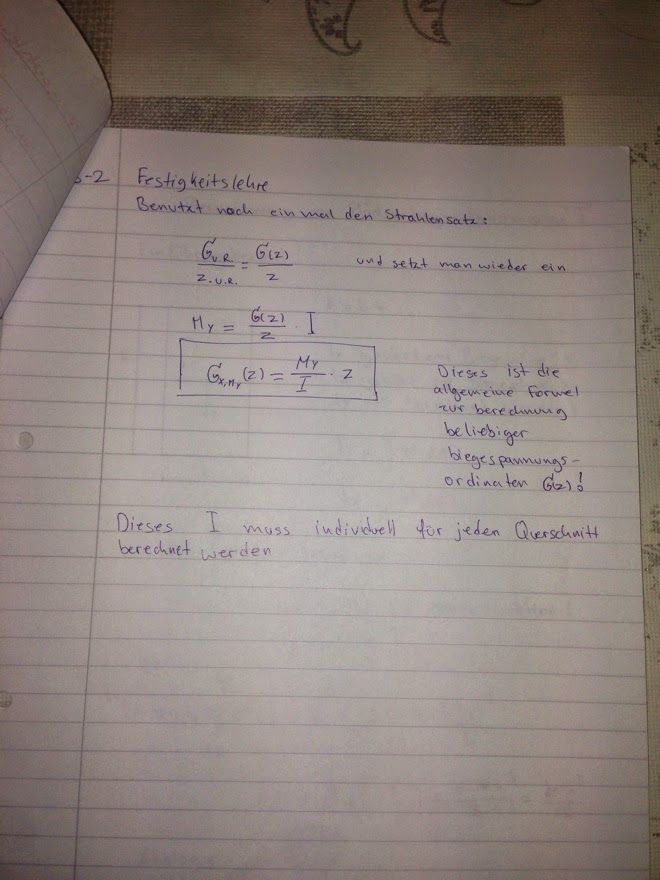 -2 Festigkeitslehre
Benutzt noch einmal den Strahlensatz:
σ_U.R. / z.U.R. = σ(z) / z und setzt man wieder ein
My = σ(z) / z · I
σx,My (z) = My / I · z
Dieses ist die
allgemeine Formel
zur berechnung
beliebiger
biegespannungs-
ordinaten σ(z)!
Dieses I muss individuell für jeden Querschnitt
berechnet werden